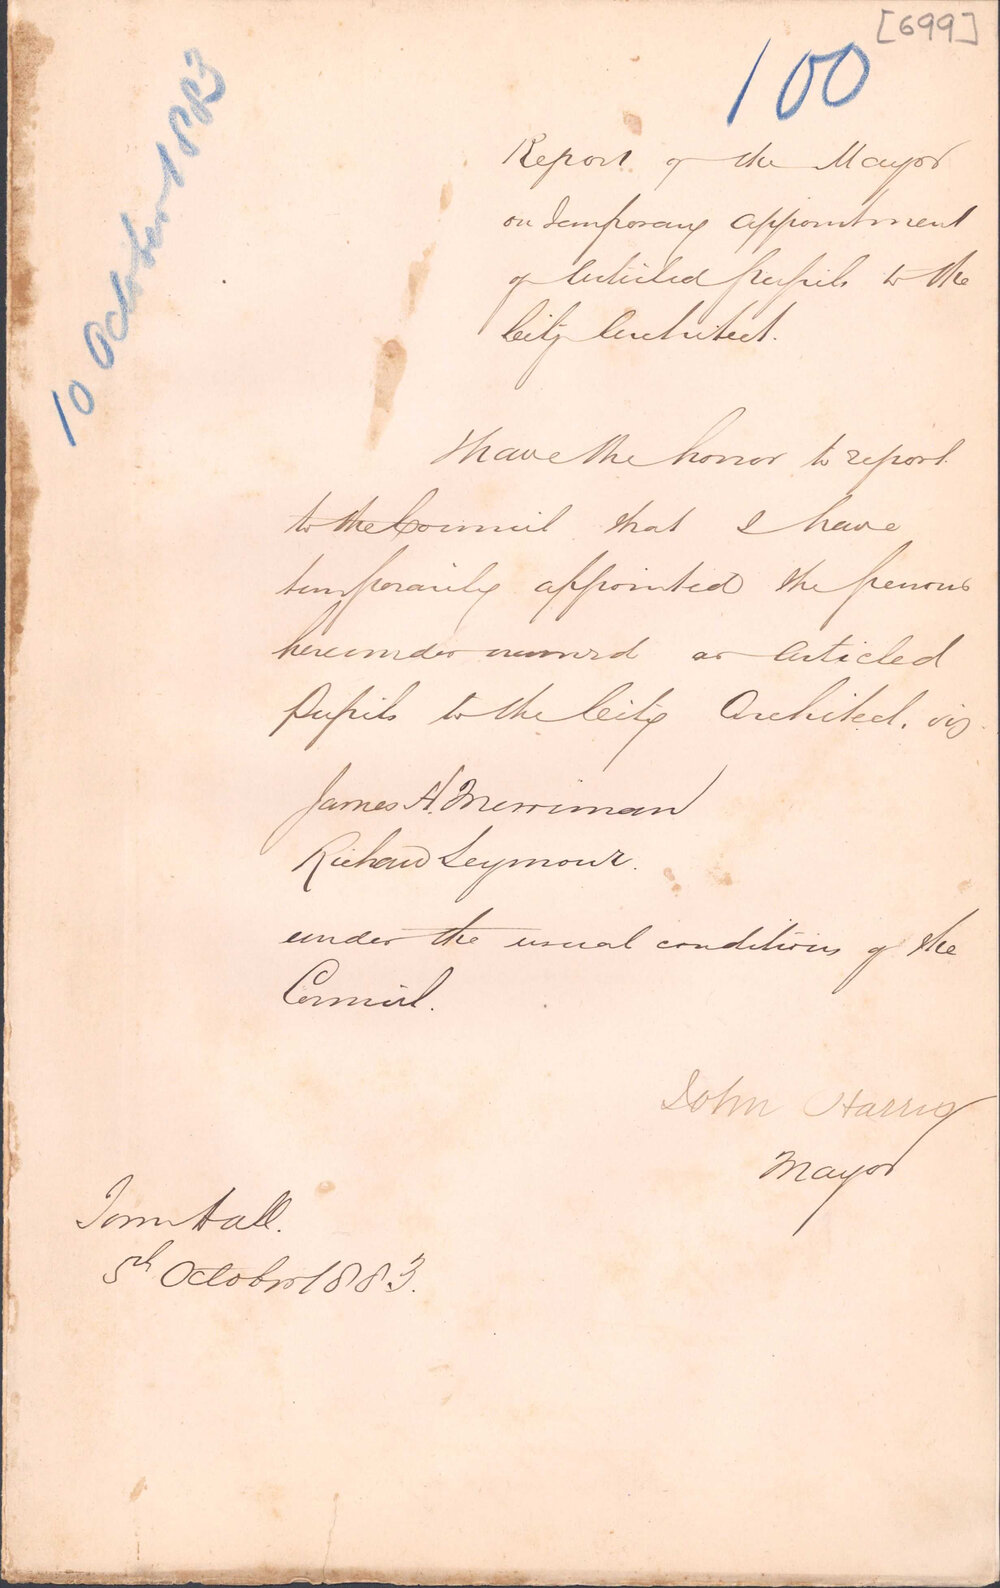 [699]
100
10 October 1883
Report of the Mayor
on Temporary appointment
of Articled pupils to the
City Architect.
I have the honor to report
to the Council that I have
temporarily appointed the persons
hereunder named as Articled
Pupils to the City Architect. viz
James A. Merriman
Richard Seymour.
under the usual conditions of the
Council.
John Harris
Mayor
Town Hall.
5th October 1883.